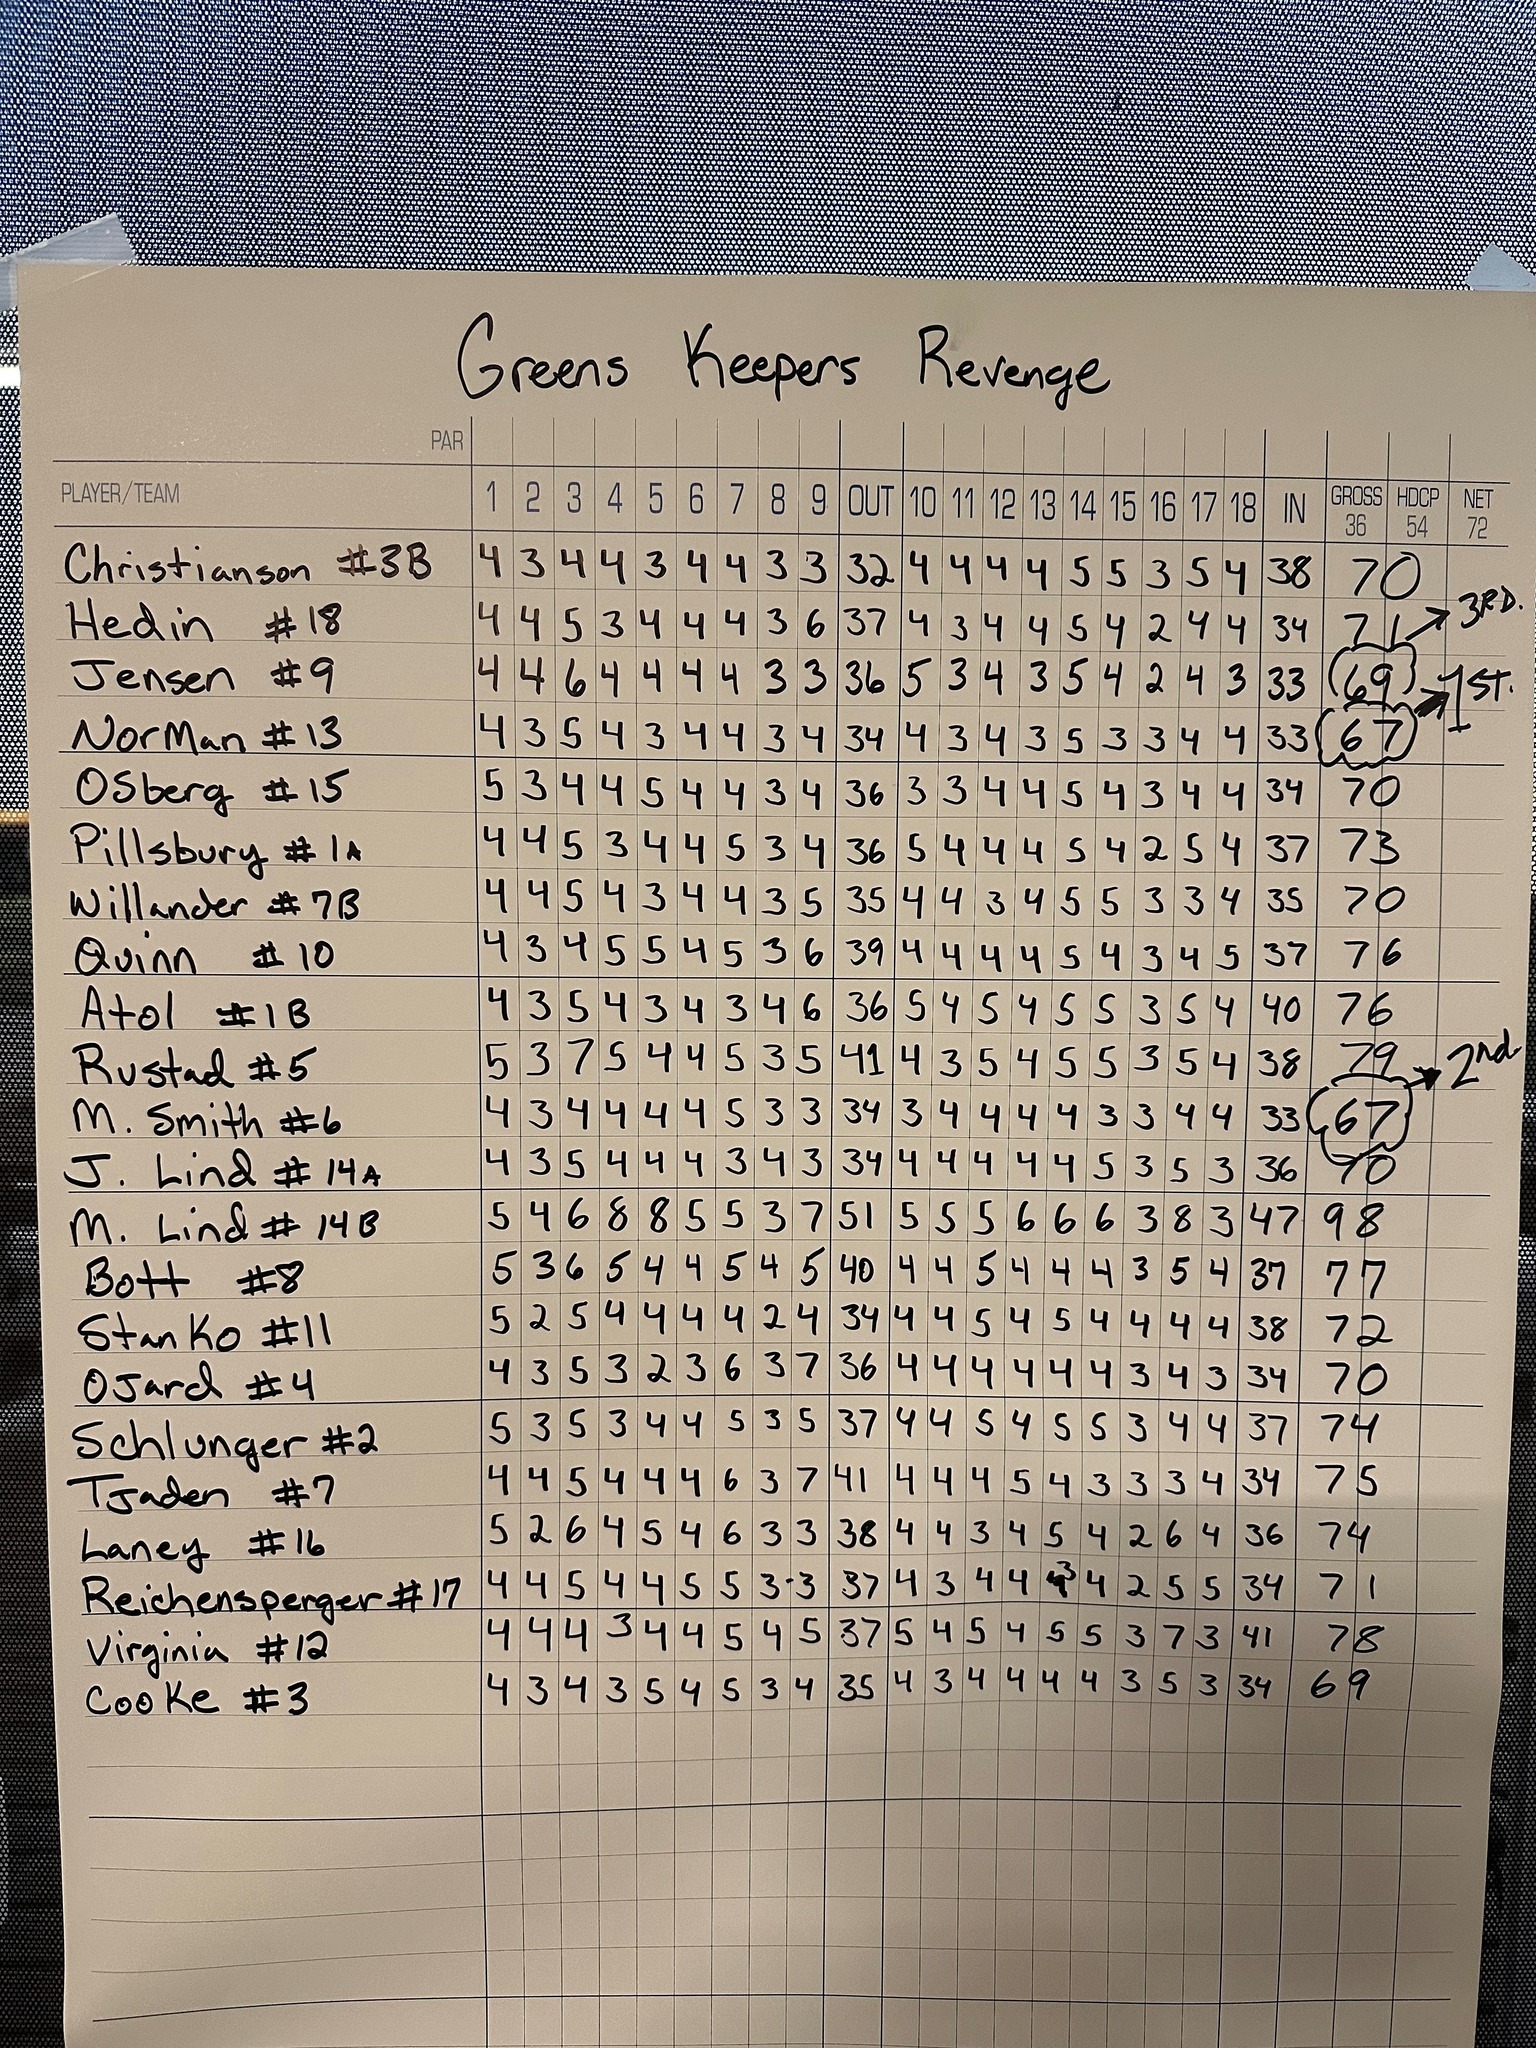 Greens Keepers Revenge
PAR
PLAYER/TEAM 1 2 3 4 5 6 7 8 9 OUT 10 11 12 13 14 15 16 17 18 IN GROSS 36 HDCP 54 NET 72
Christianson #3B 4 3 4 4 3 4 4 3 3 32 4 4 4 4 5 5 3 5 4 38 70
Hedin #18 4 4 5 3 4 4 4 3 6 37 4 3 4 4 5 4 2 4 4 34 71 3RD.
Jensen #9 4 4 6 4 4 4 4 3 3 36 5 3 4 3 5 4 2 4 3 33 69 1ST.
NorMan #13 4 3 5 4 3 4 4 3 4 34 4 3 4 3 5 3 3 4 4 33 67
OSberg #15 5 3 4 4 5 4 4 3 4 36 3 3 4 4 5 4 3 4 4 34 70
Pillsbury #1A 4 4 5 3 4 4 5 3 4 36 5 4 4 4 5 4 2 5 4 37 73
Willander #7B 4 4 5 4 3 4 4 3 5 35 4 4 3 4 5 5 3 3 4 35 70
Quinn #10 4 3 4 5 5 4 5 3 6 39 4 4 4 4 5 4 3 4 5 37 76
Atol #1B 4 3 5 4 3 4 3 4 6 36 5 4 5 4 5 5 3 5 4 40 76
Rustad #5 5 3 7 5 4 4 5 3 5 41 4 3 5 4 5 5 3 5 4 38 79 2nd
M. Smith #6 4 3 4 4 4 4 5 3 3 34 3 4 4 4 4 3 3 4 4 33 67
J. Lind #14A 4 3 5 4 4 4 3 4 3 34 4 4 4 4 4 5 3 5 3 36 70
M. Lind #14B 5 4 6 8 8 5 5 3 7 51 5 5 5 6 6 6 3 8 3 47 98
Bott #8 5 3 6 5 4 4 5 4 5 40 4 4 5 4 4 4 3 5 4 37 77
StanKo #11 5 2 5 4 4 4 4 2 4 34 4 4 5 4 5 4 4 4 4 38 72
OJard #4 4 3 5 3 2 3 6 3 7 36 4 4 4 4 4 4 3 4 3 34 70
Schlunger #2 5 3 5 3 4 4 5 3 5 37 4 4 5 4 5 5 3 4 4 37 74
TJaden #7 4 4 5 4 4 4 6 3 7 41 4 4 4 5 4 3 3 3 4 34 75
Laney #16 5 2 6 4 5 4 6 3 3 38 4 4 3 4 5 4 2 6 4 36 74
Reichensperger #17 4 4 5 4 4 5 5 3 3 37 4 3 4 4 3 4 2 5 5 34 71
Virginia #12 4 4 4 3 4 4 5 4 5 37 5 4 5 4 5 5 3 7 3 41 78
CooKe #3 4 3 4 3 5 4 5 3 4 35 4 3 4 4 4 4 3 5 3 34 69